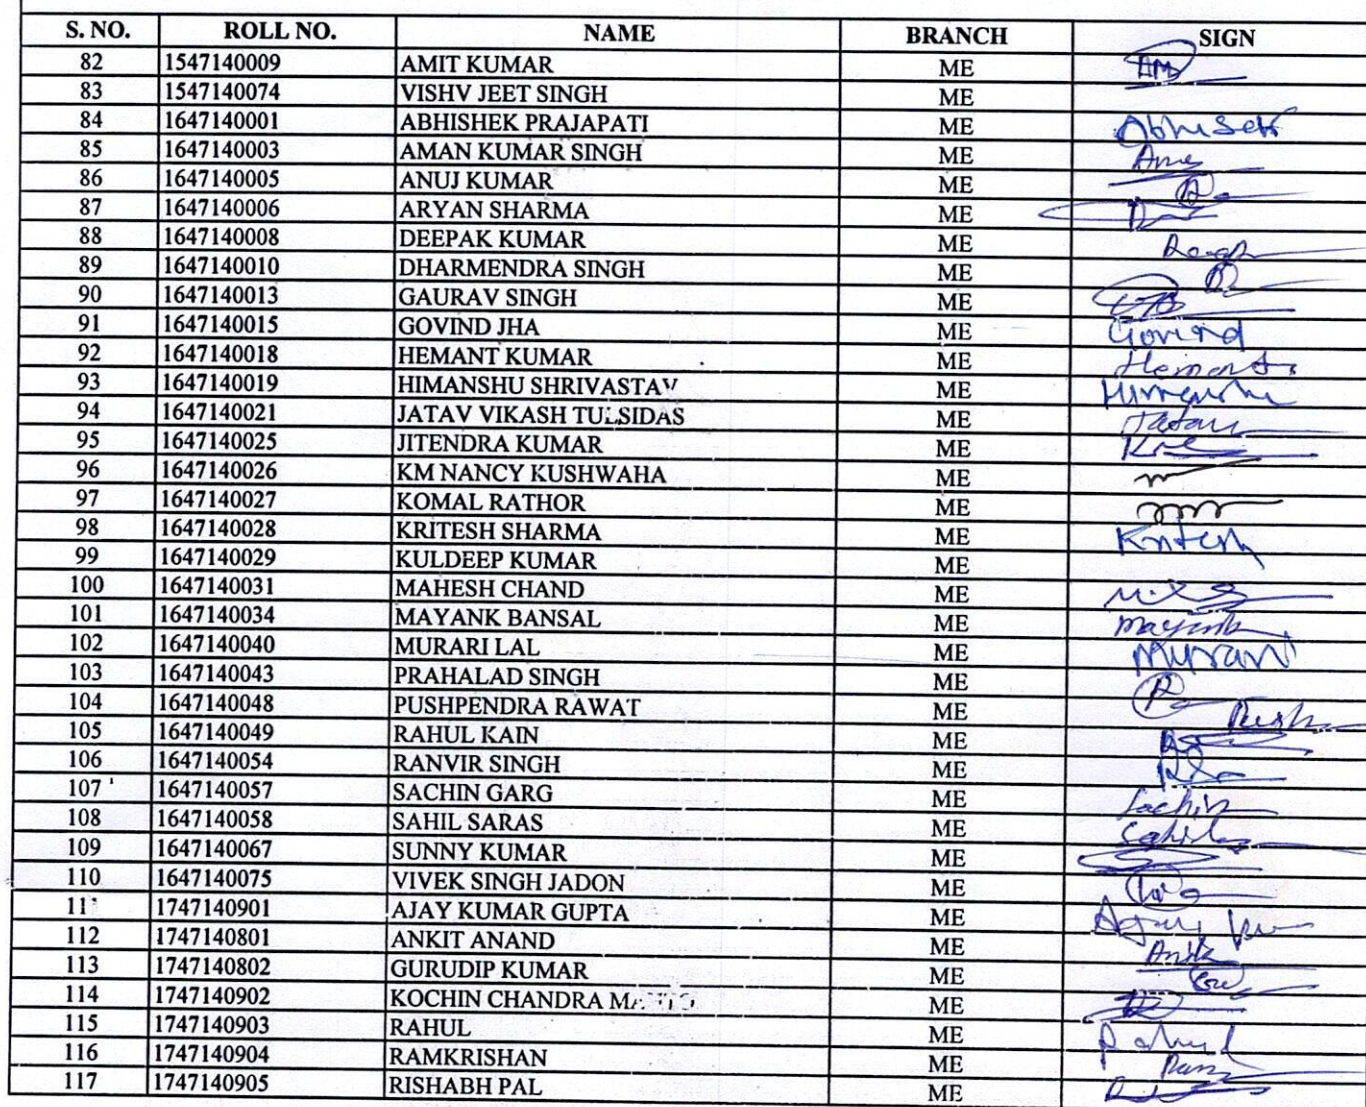 S. NO. ROLL NO. NAME BRANCH SIGN
82 1547140009 AMIT KUMAR ME AM
83 1547140074 VISHV JEET SINGH ME
84 1647140001 ABHISHEK PRAJAPATI ME
85 1647140003 AMAN KUMAR SINGH ME
86 1647140005 ANUJ KUMAR ME
87 1647140006 ARYAN SHARMA ME
88 1647140008 DEEPAK KUMAR ME
89 1647140010 DHARMENDRA SINGH ME
90 1647140013 GAURAV SINGH ME
91 1647140015 GOVIND JHA ME Govind
92 1647140018 HEMANT KUMAR ME Hemant
93 1647140019 HIMANSHU SHRIVASTAV ME Himanshu
94 1647140021 JATAV VIKASH TULSIDAS ME Jatav
95 1647140025 JITENDRA KUMAR ME
96 1647140026 KM NANCY KUSHWAHA ME
97 1647140027 KOMAL RATHOR ME
98 1647140028 KRITESH SHARMA ME Kritesh
99 1647140029 KULDEEP KUMAR ME
100 1647140031 MAHESH CHAND ME
101 1647140034 MAYANK BANSAL ME Mayank
102 1647140040 MURARI LAL ME Murari
103 1647140043 PRAHALAD SINGH ME
104 1647140048 PUSHPENDRA RAWAT ME Push
105 1647140049 RAHUL KAIN ME
106 1647140054 RANVIR SINGH ME
107 1647140057 SACHIN GARG ME Sachin
108 1647140058 SAHIL SARAS ME Sahil
109 1647140067 SUNNY KUMAR ME
110 1647140075 VIVEK SINGH JADON ME
11 1747140901 AJAY KUMAR GUPTA ME Ajay
112 1747140801 ANKIT ANAND ME
113 1747140802 GURUDIP KUMAR ME
114 1747140902 KOCHIN CHANDRA ME
115 1747140903 RAHUL ME Rahul
116 1747140904 RAMKRISHAN ME Ram
117 1747140905 RISHABH PAL ME